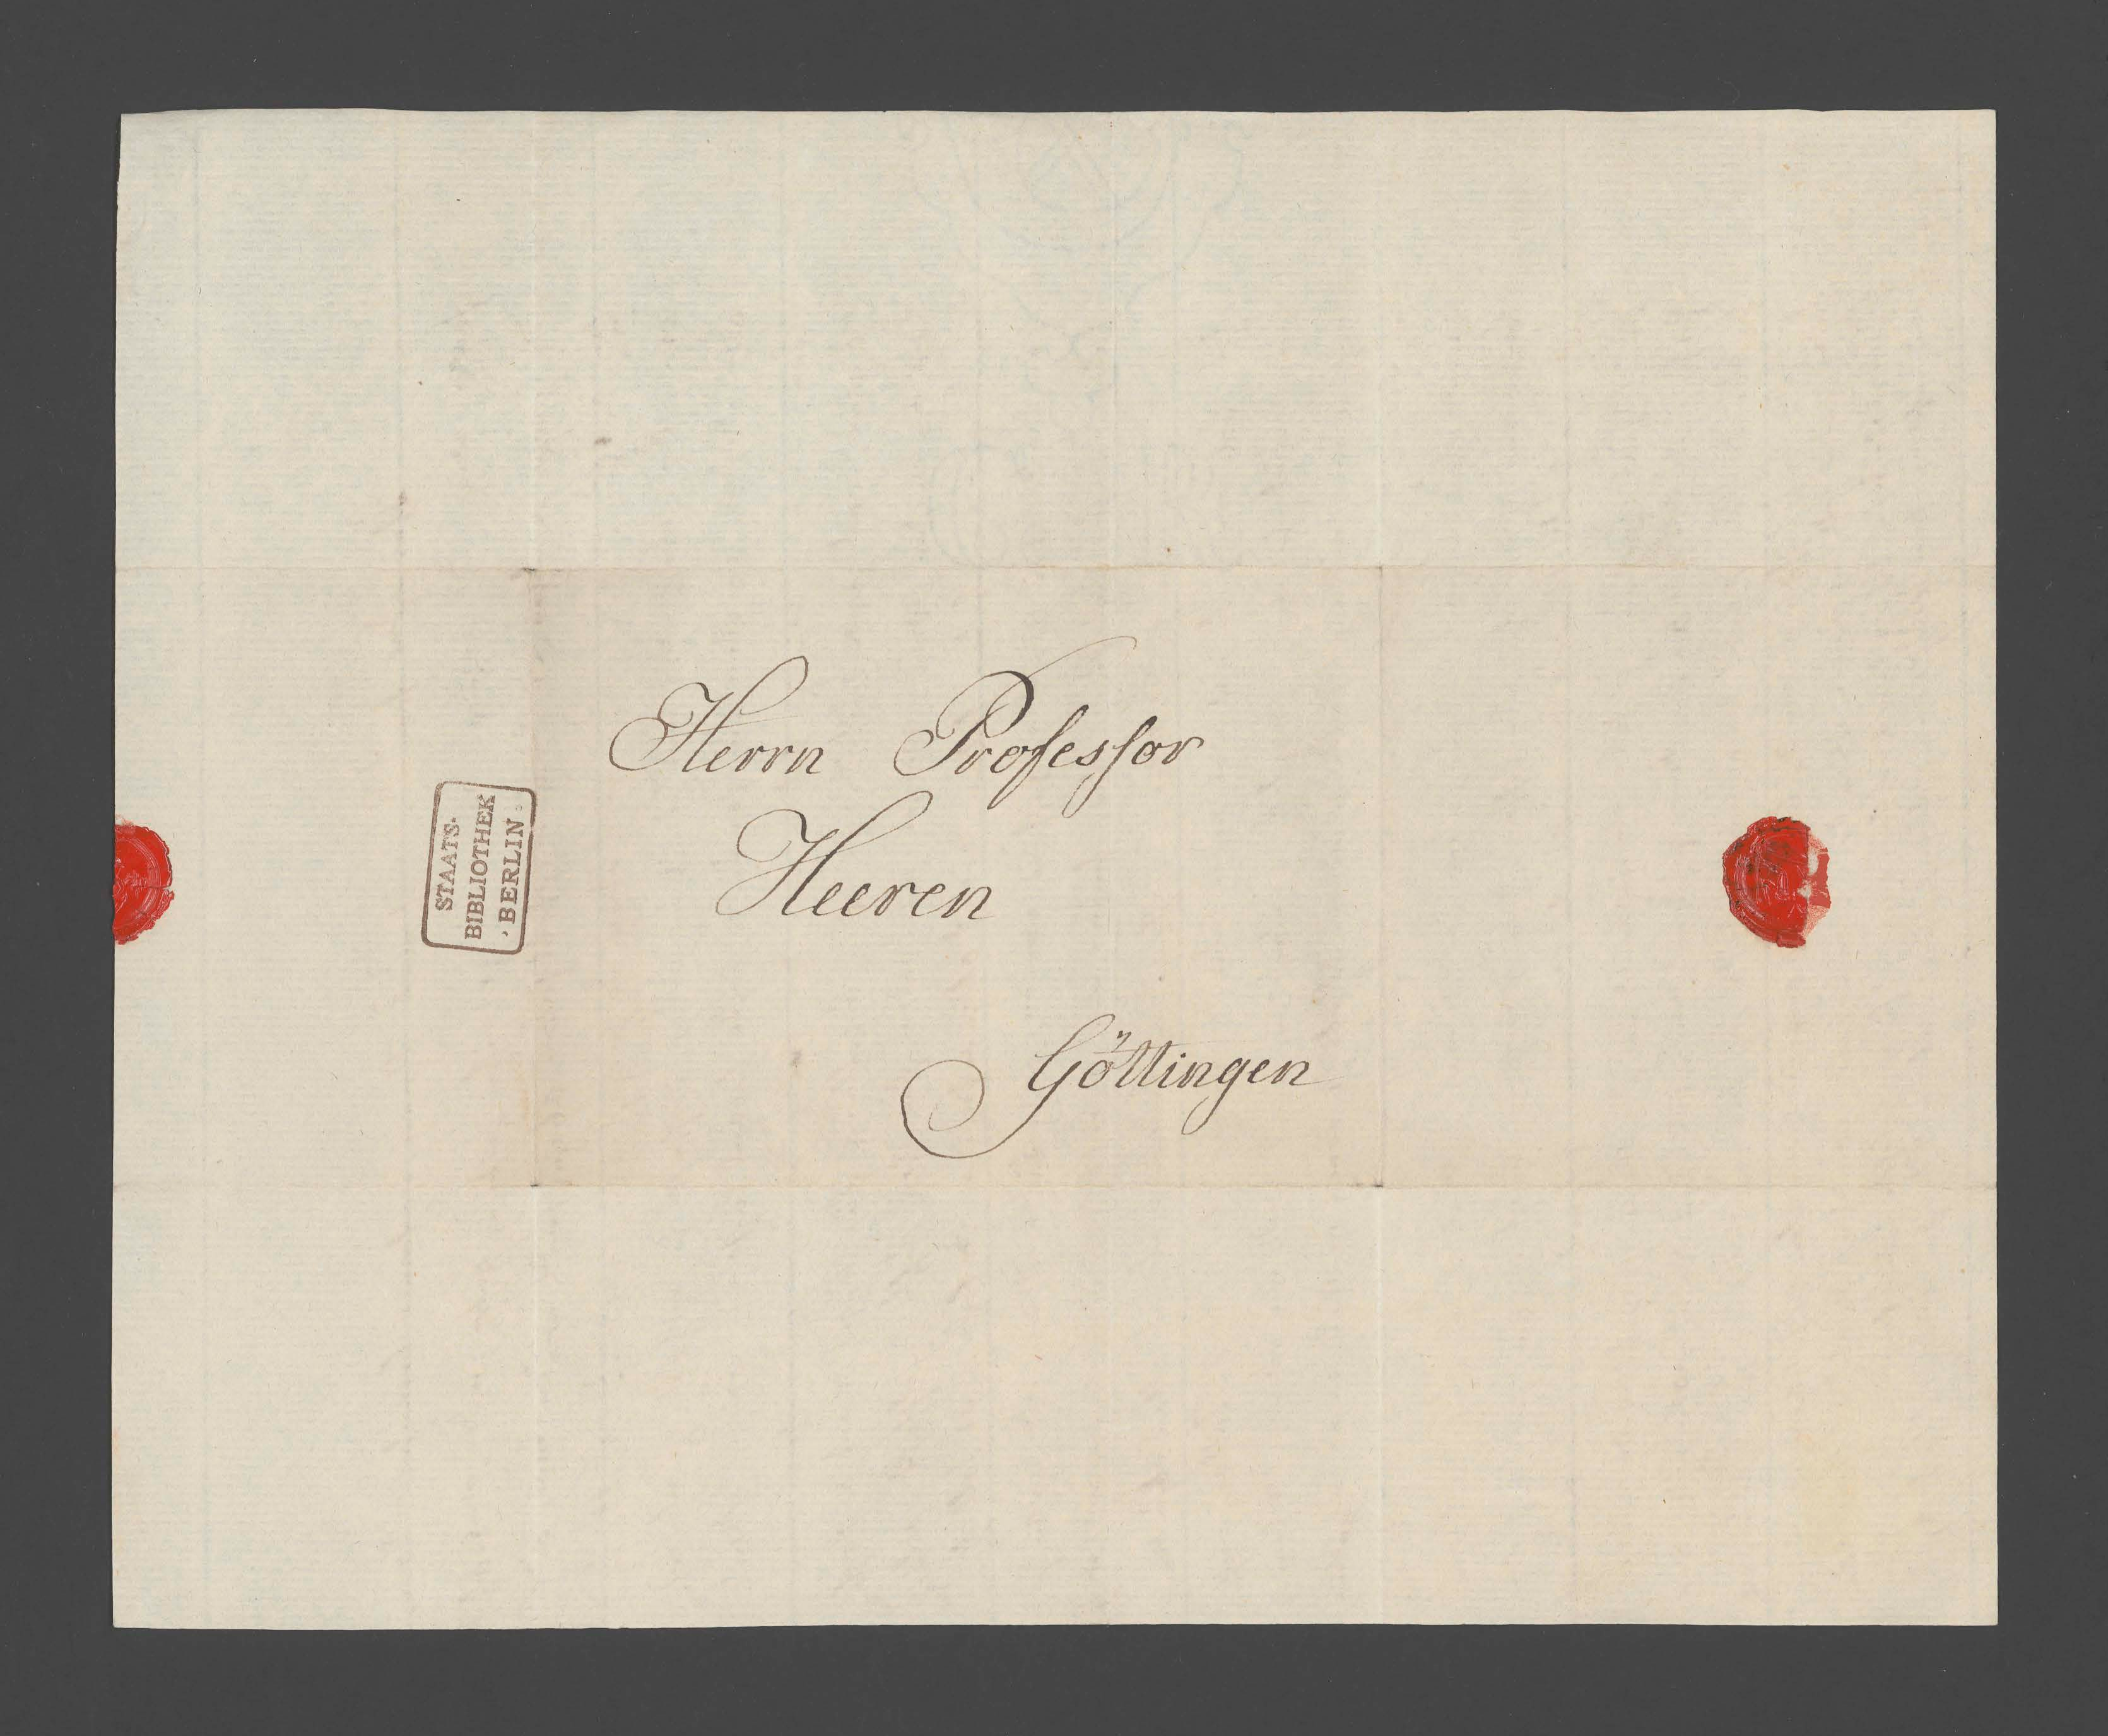 Herrn Professor
Heeren
Göttingen
STAATS-
BIBLIOTHEK
· BERLIN ·